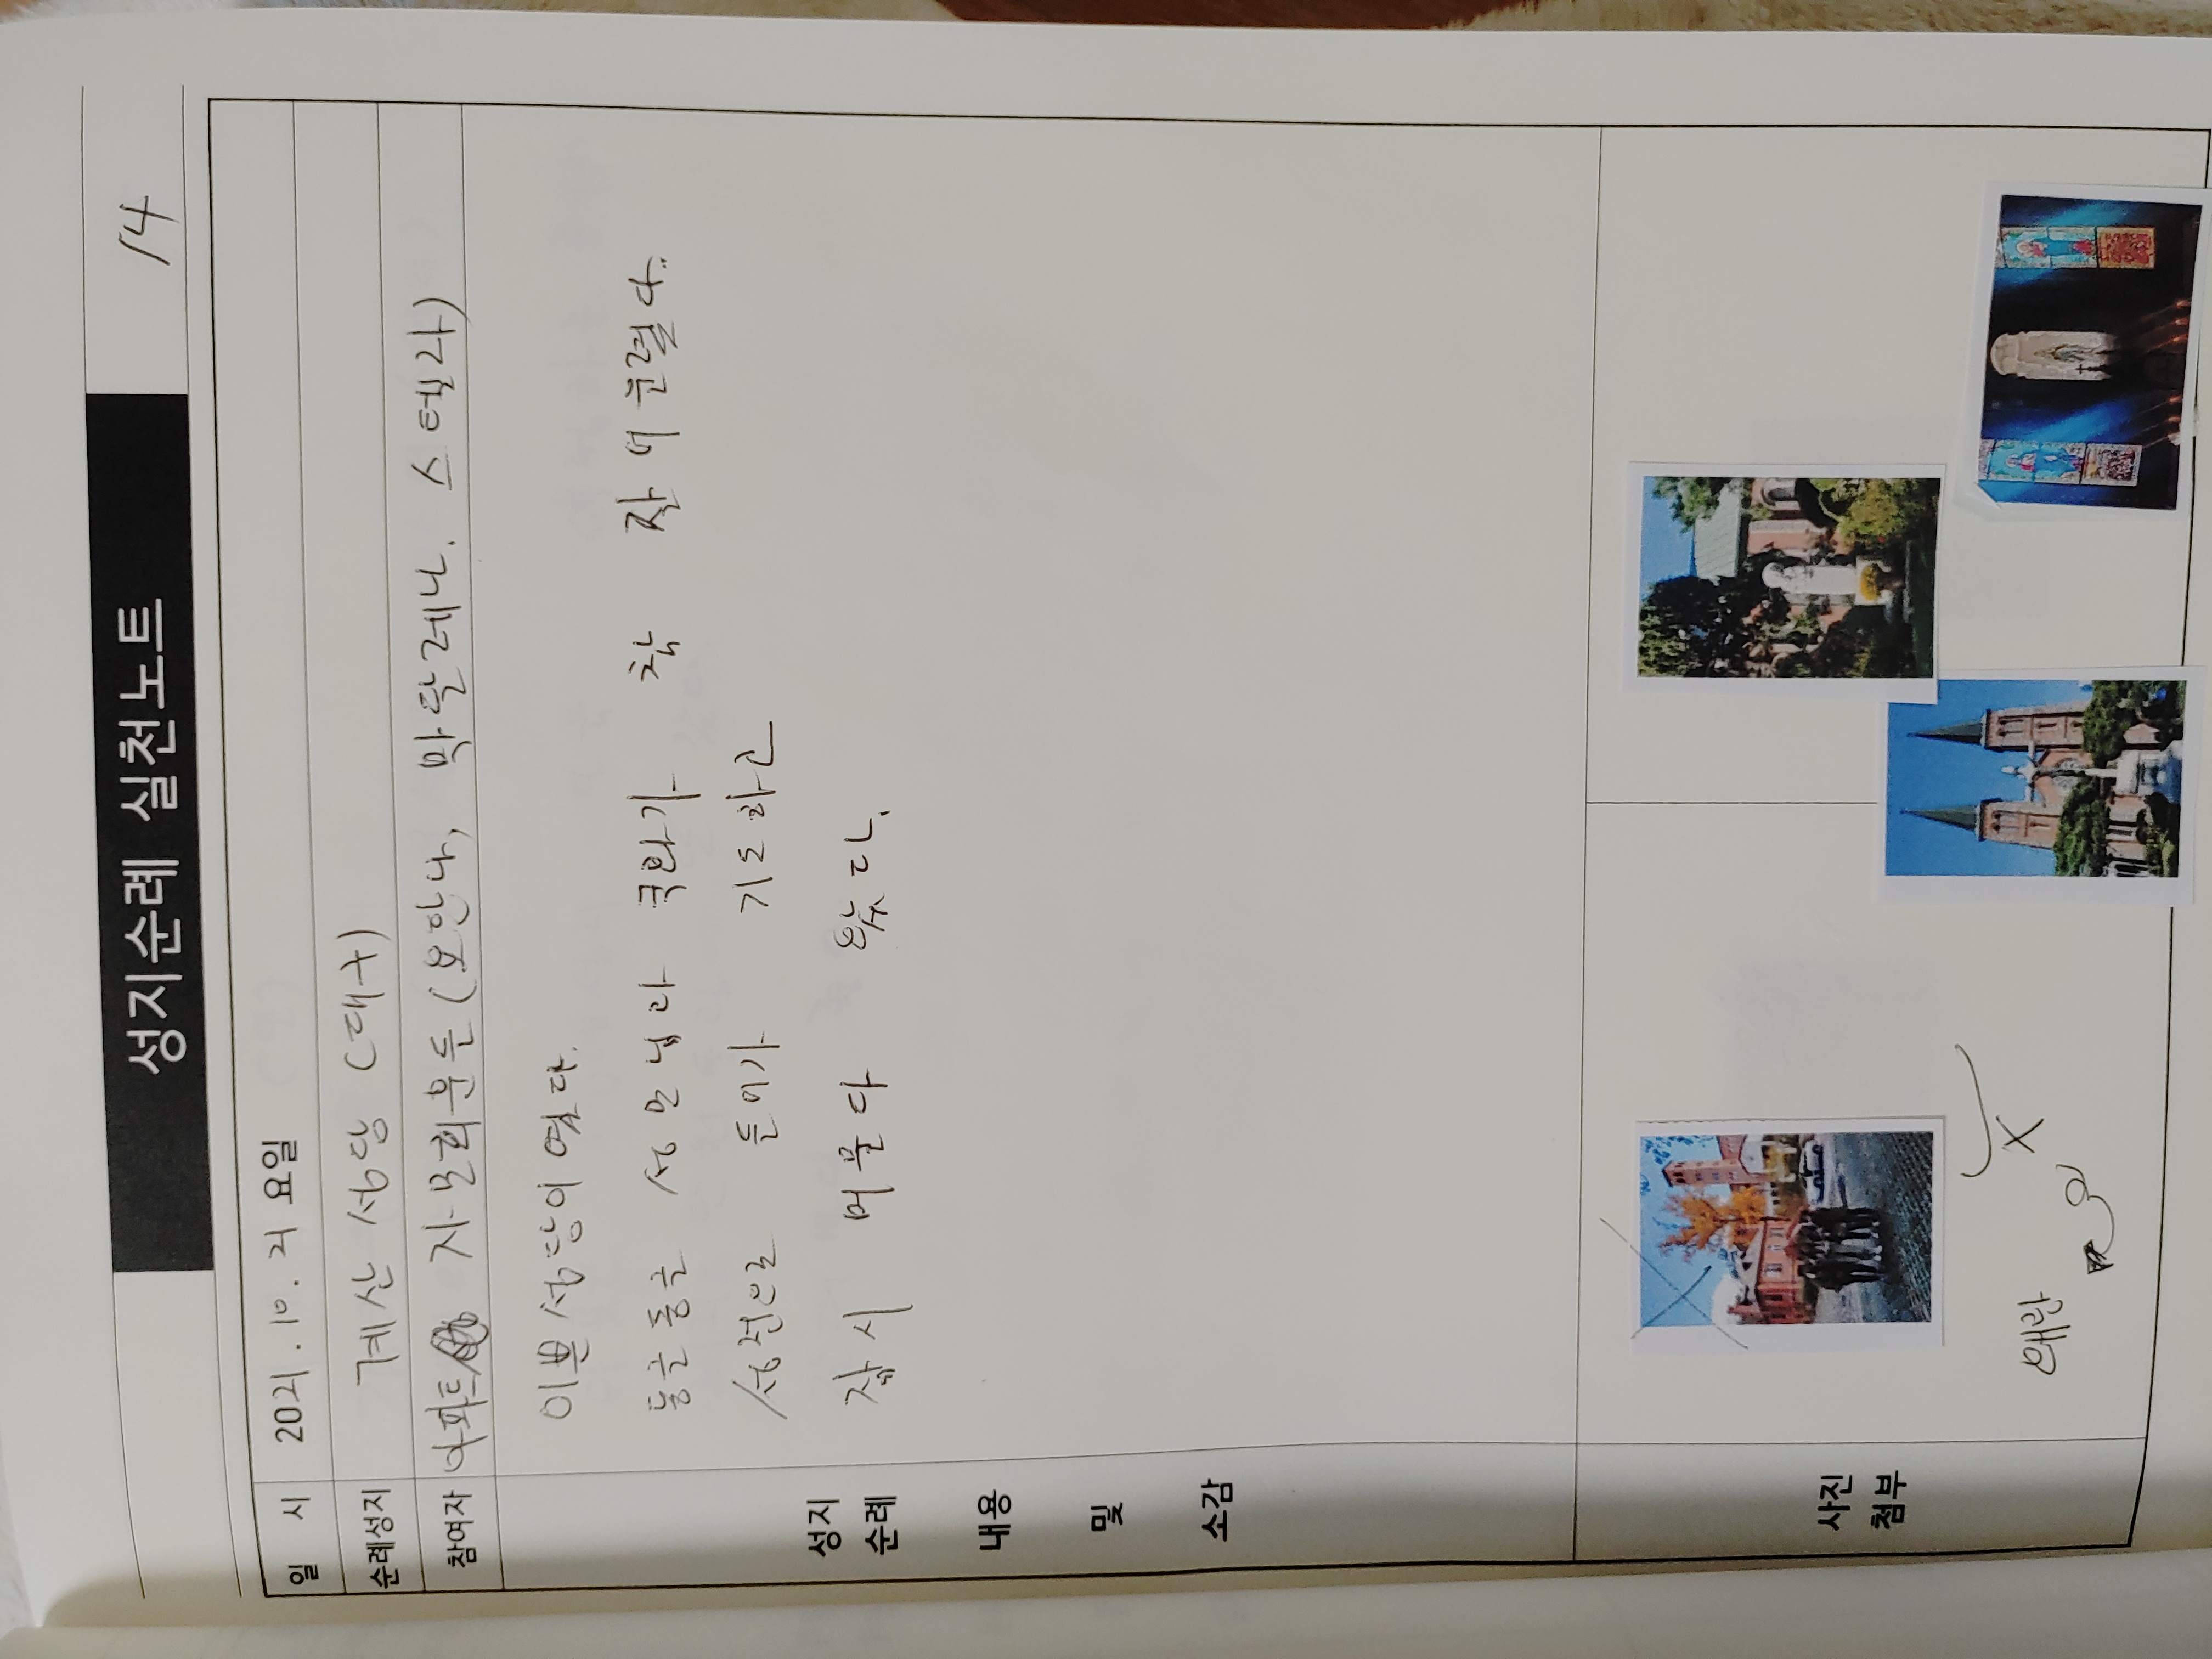 성지순례 실천노트
14
일 시 2021. 10. 21 요일
순례성지 계산 성당 (대구)
참여자 아파트 자모회분들 (요안나, 막달레나. 스텔라)
성지
순례
내용
및
소감
이쁜 성당이 였다.
둥근둥근 성모님과 국화가 참 잘 어울렸다..
성전으로 들어가 기도하고
잠시 머물다 왔다.
사진
첨부
왜관
X